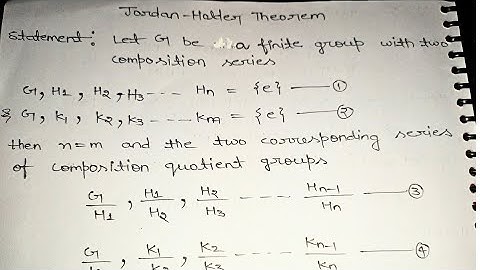 Jordan-Holder Theorem
Statement: Let G be a finite group with two
composition series
G, H1, H2, H3 ---- Hn = {e} — ①
& G, K1, K2, K3 ---- Km = {e} — ②
then n=m and the two corresponding series
of composition quotient groups
G/H1, H1/H2, H2/H3 ---- Hn-1/Hn — ③
G/, K1/, K2/K3 ---- Kn-1/Kn — ④